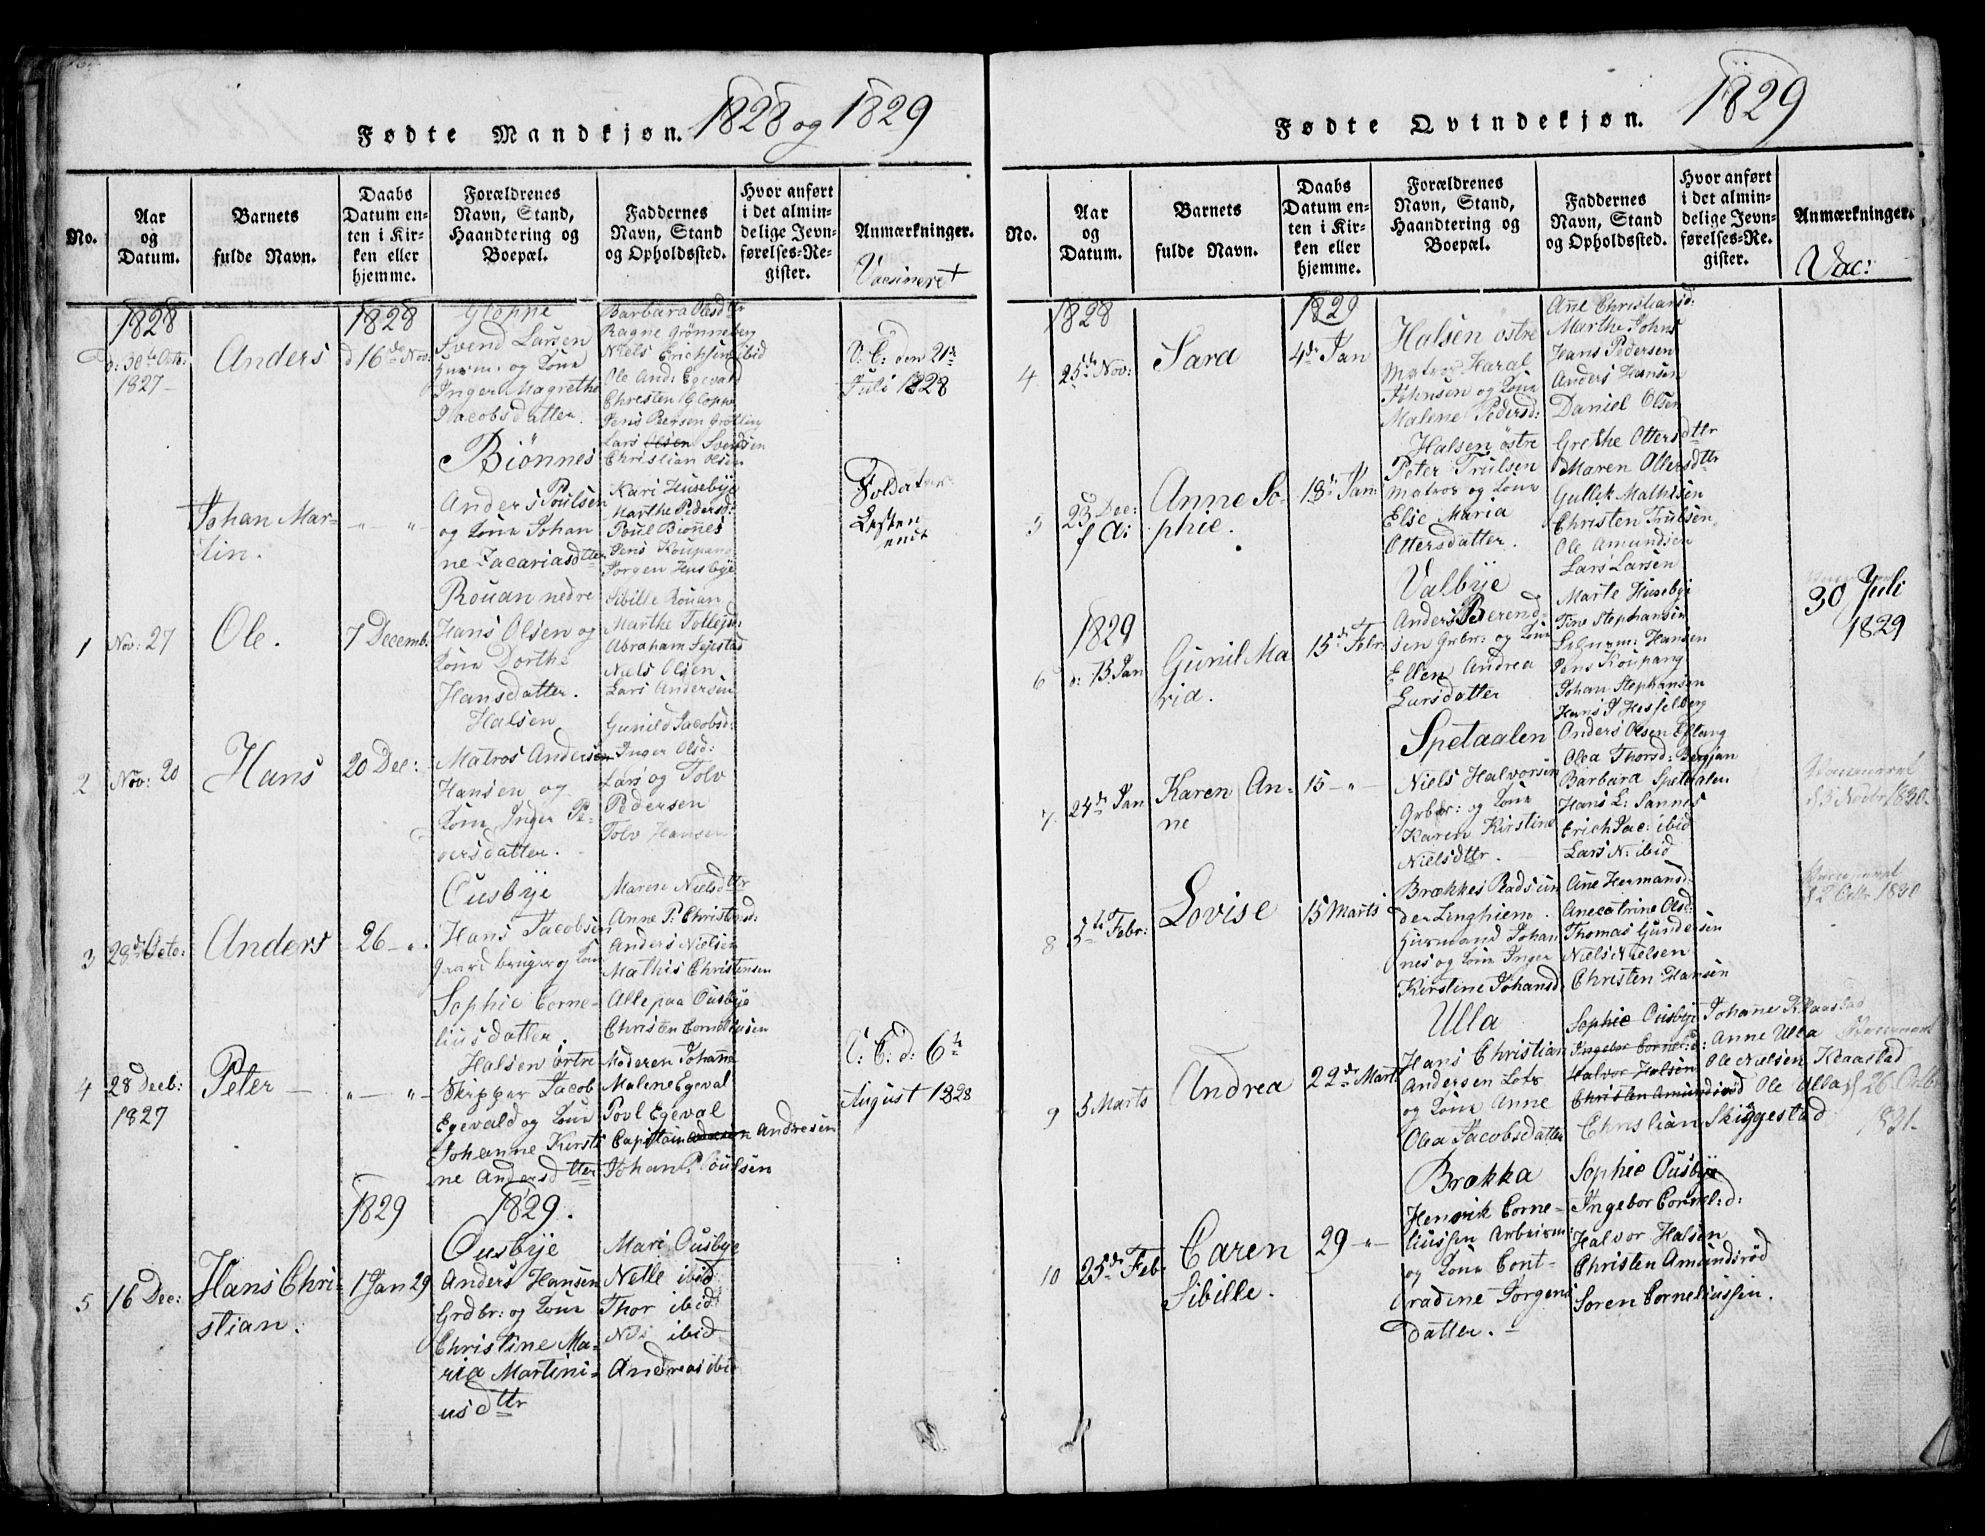 Fødte Mandkjøn. 1828 og 1829
No.
Aar
og
Datum.
Barnets
fulde Navn.
Daabs
Datum en-
ten i Kir-
ken eller
hjemme.
Forældrenes
Navn, Stand,
Haandtering og
Boepæl.
Faddernes
Navn, Stand
og Opholdssted.
Hvor anført
i det almin-
delige Jevn-
førelses-Re-
gister.
Anmærkninger.
Vacsineret
1828
30te Octb:
1827
Anders
1828
d 16de Nov:
Gloppe
Svend Larsen
Huusm: og Kone
Inger Magrethe
Jacobsdatter.
Barbara Olsdttr
Ragne Grønneberg
Niels Erichsen ibid
Ole And: Egevald
Christen Gloppe
Jens Bersen Grötting
Lars Olsen Svendsen
Christian Olsen
den 21de
Juli 1828
Johan Mar-
tin.
Biönnes
Anders Poulsen
og Kone Johan
ne Zacariasdtter
Kari Husebÿe
Marthe Pedersd:
Poul Biönes
Jens Koupang
Jörgen Husbÿe
Soldater
1
Nov: 27
Ole.
7 Decemb.
Rouan nedre
Hans Olsen og
Kone Dorthe
Hansdatter.
Sibille Rouan
Marthe Tollefsn:
Abraham Sejstad
Niels Olsen
Lars Andersen
2
Nov: 20
Hans
20 Dec:
Halsen
Matros Andersen
Hansen og
Kone Inger Pe-
dersdatter.
Gunild Jacobsd:
Inger Olsd:
Lars og Tolv
Pedersen
Tolv Hansen
3
28de Octo:
Anders
- 26 - "
Ousbÿe
Hans Jacobsen
Gaardbruger og Kone
Sophie Corne-
liusdatter.
Maren Nielsdttr
Anne P: Christensd:
Anders Nielsen
Mathis Christensen
Alle paa Ousbÿe
Christen Corneliussen
4
28 Decb:
1827
Peter
" — "
Halsen östre
Skipper Jacob
Egevald og Kone
Johanne Kirsti
ne Andersdtter
Moderen Johanne
Malene Egeval
Povl Egeval
Capitain Andresen
Johan Poulsen
d: 6te
August 1828
1829
1829.
5
16 Dec:
Hans Chri-
stian.
1 Jan 29
Ousbÿe
Anders Hansen
Grdbr: og Kone
Christine Ma-
ria Martini-
usdttr
Mari Ousbÿe
Nelle ibid
Thor ibid
Nils ibid
Andreas ibid
Fødte Qvindekjøn. 1829
No.
Aar
og
Datum.
Barnets
fulde Navn.
Daabs
Datum en-
ten i Kir-
ken eller
hjemme.
Forældrenes
Navn, Stand,
Haandtering og
Boepæl.
Faddernes
Navn, Stand
og Opholdssted.
Hvor anført
i det almin-
delige Jevn-
førelses-Re-
gister.
Anmærkninger.
Vac:
1828
4
25de Nov:
Sara
1829
4de Jan
Halsen östre
Matros Haral
Johnsen og Kone
Malene Pedersd:
Ane Christiansd:
Marthe Johns
Hans Pedersen
Anders Hansen
Daniel Olsen
5
23 Dec:
f A:
Anne So-
phie.
18de Jan:
Halsen östre
Peter Trulsen
Matros og Kone
Else Maria
Ottersdatter.
Grethe Ottersdttr
Maren Ollersdttr
Gullik Mathisen
Christen Trulsen
Ole Amundsen
Lars Larsen
1829
6
d: 13 Jan
Gunil Ma
ria.
15de Febr:
Valbÿe
Anders Berend-
sen Grbr: og Kone
Ellen Andrea
Larsdatter
Marte Husebÿe
Tine Stephansen
Hansen
Jens Koupang
Johan Stephansen
Hans J Hesselberg
30 Juli
1829
7
24de Jan
Karen An-
ne
15 — " —
Spetaalen
Niels Halvorsen
Grbr: og Kone
Karen Kirstine
Nielsdttr.
Anders Olsen Eftang
Olea Thorsd: Bergan
Barbara Spetaalen
Hans L: Sannes
Erich Jac: ibid
Lars N: ibid
Vaccineret
d 5 Novbr 1830.
8
5te Febr:
Lovise
15 Marts
Brækkes Pladsun
der Linghiem.
Huusmand Johan
nes og Kone Inger
Kirstine Johansd:
Ane Hermansd:
Anecatrine Olsd:
Thomas Gundersen
Niels Nielsen
Christen Hansen
Vaccineret
d 2 Octr 1830
9
5 Marts
Andrea
22de Marts
Ulla
Hans Christian
Andersen Lots
og Kone Anne
Olea Jacobsdatter
Sophie Ousbÿe Johanne Klaastad
Ingebor Cornel:d: Anne Ulla
Halvor Halsen Ole Nielsen Klaastad
Christen Amundsröd Ole Ulla
Christian Skiggestad
Vaccineret
d 26 Octbr
1831.
10
25de Feb:
Caren
Sibille.
29 — "
Brækka
Henrik Corne-
liussen Arbeidsm
og Kone Cont-
radine Jörgens
datter. —
Sophie Ousbÿe
Ingebor Cornel:d:
Halvor Halsen
Christen Amundsröd
Soren Corneliussen.